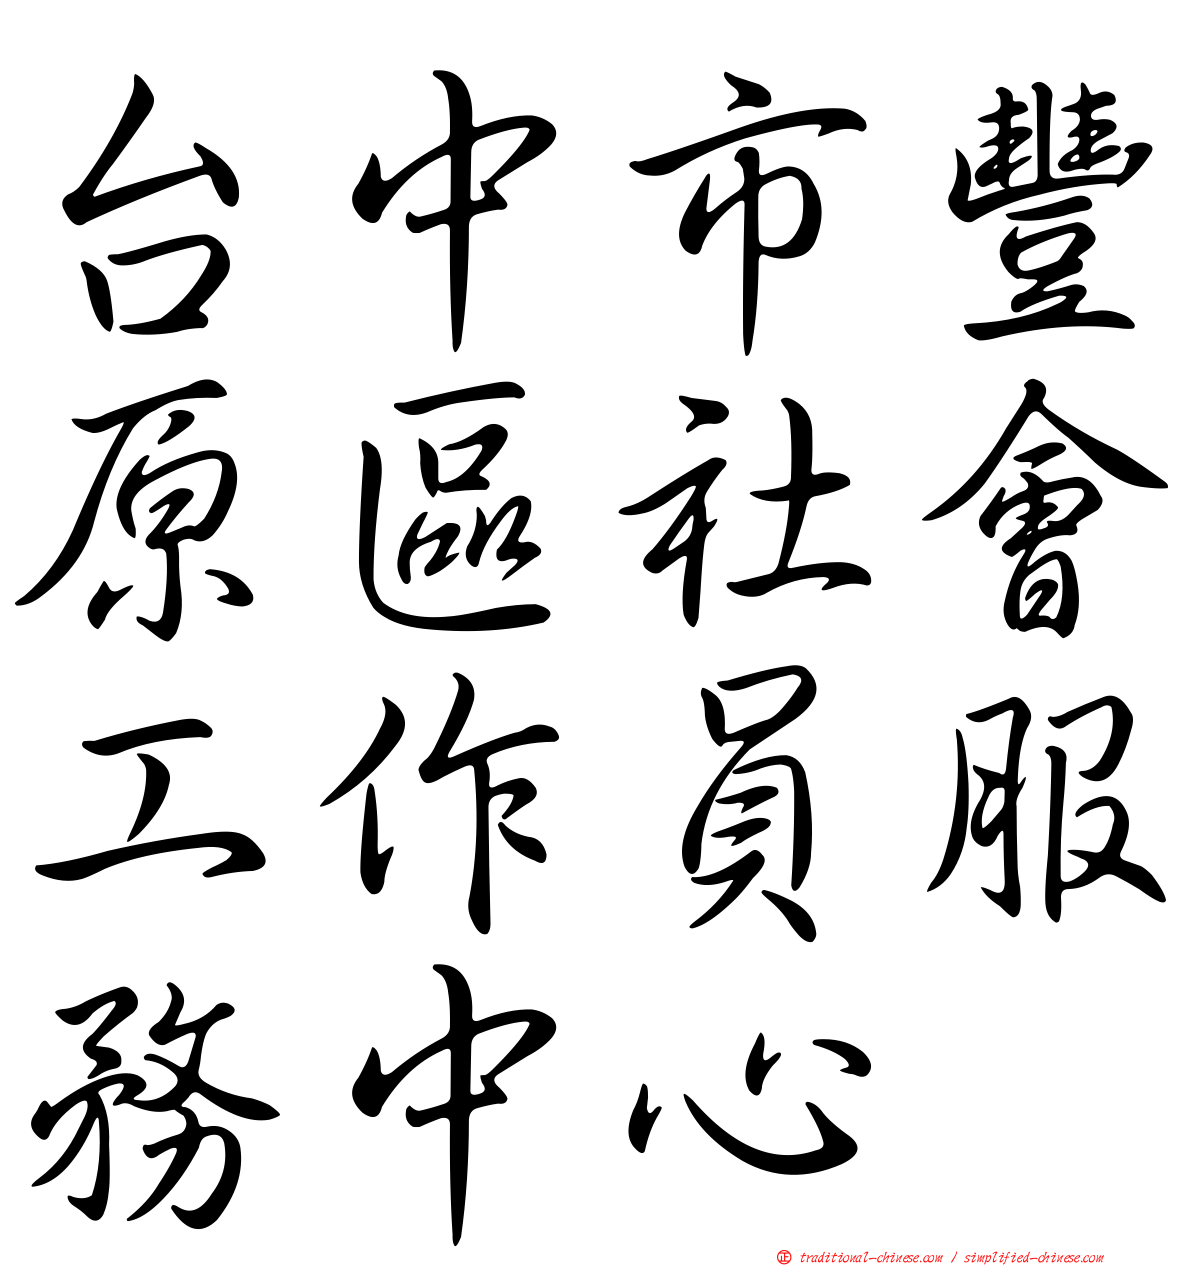 台中市豐
原區社會
工作員服
務中心
正 traditional-chinese.com / simplified-chinese.com